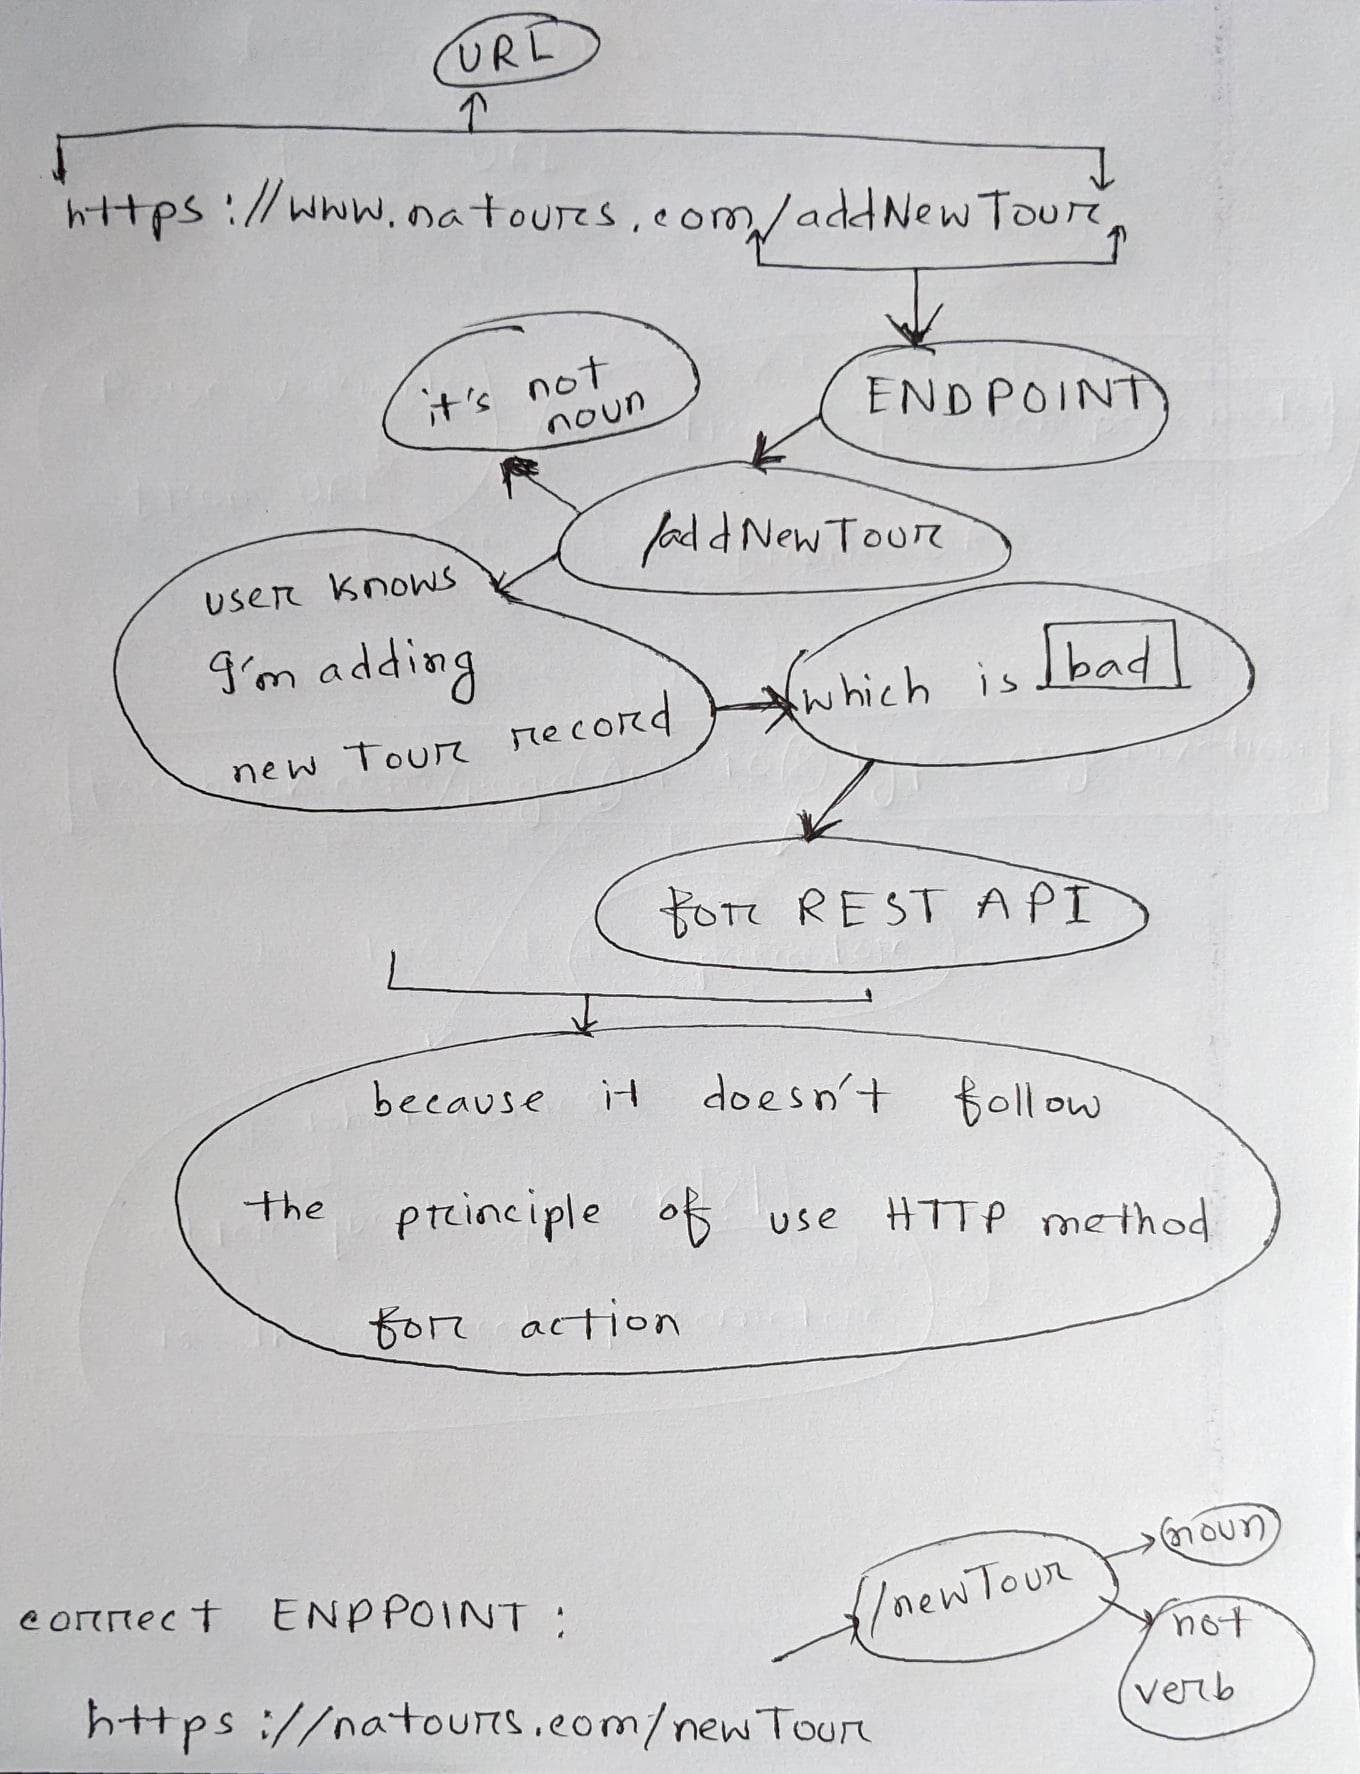 URL
https://www.natours.com/addNewTour
ENDPOINT
it's not
noun
/addNewTour
user knows
I'm adding
new Tour record
which is bad
for REST API
because it doesn't follow
the principle of use HTTP method
for action
/newTour
noun
not
verb
correct ENDPPOINT :
https://natours.com/newTour